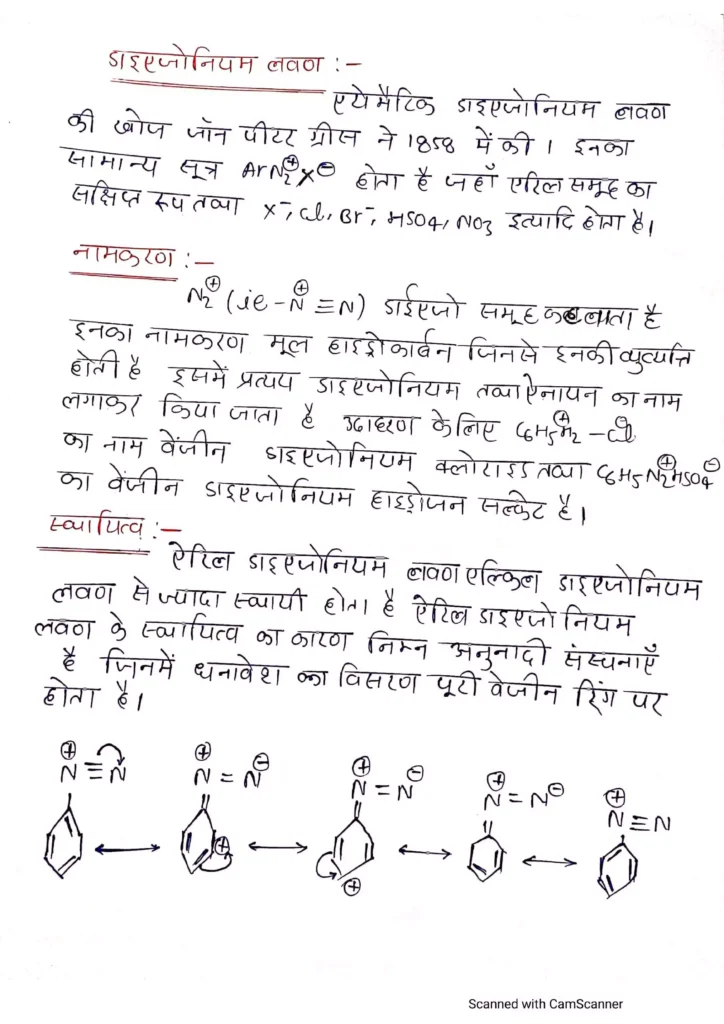 डाइएजोनियम लवण :-
एरोमैटिक डाइएजोनियम लवण
की खोज जॉन पीटर ग्रीस ने 1858 में की । इनका
सामान्य सूत्र ArN₂⊕X⊖ होता है जहाँ एरिल समूह का
सक्षिप्त रूप तथा X⁻, Cl, Br⁻, HSO4, NO3 इत्यादि होता है।
नामकरण :-
N₂⊕ (ie - N⊕ ≡ N) डाईएजो समूह कहलाता है
इनका नामकरण मूल हाइड्रोकार्बन जिनसे इनकी व्युत्पत्ति
होती है इसमें प्रत्यय डाइएजोनियम तथा ऐनायन का नाम
लगाकर किया जाता है उदाहरण के लिए C6H5N⊕2 - Cl
का नाम वेंजीन डाइएजोनियम क्लोराइड तथा C6H5N⊕2HSO4⊖
का वेंजीन डाइएजोनियम हाइड्रोजन सल्फेट है।
स्थायित्व :-
ऐरिल डाइएजोनियम लवण एल्किल डाइएजोनियम
लवण से ज्यादा स्थायी होता है ऐरिल डाइएजोनियम
लवण के स्थायित्व का कारण निम्न अनुनादी संरचनाएँ
है जिनमें धनावेश का विसरण पूरी वेंजीन रिंग पर
होता है।
N⊕ ≡ N N⊕ = N⊖ N⊕ = N⊖ N⊕ = N⊖ N⊕ ≡ N
⊕ ⊕
Scanned with CamScanner